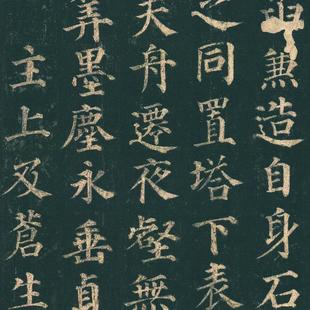 兼造自身石
之同置塔下表
夫舟遷夜壑無
筭墨塵永垂貞
主上及蒼生